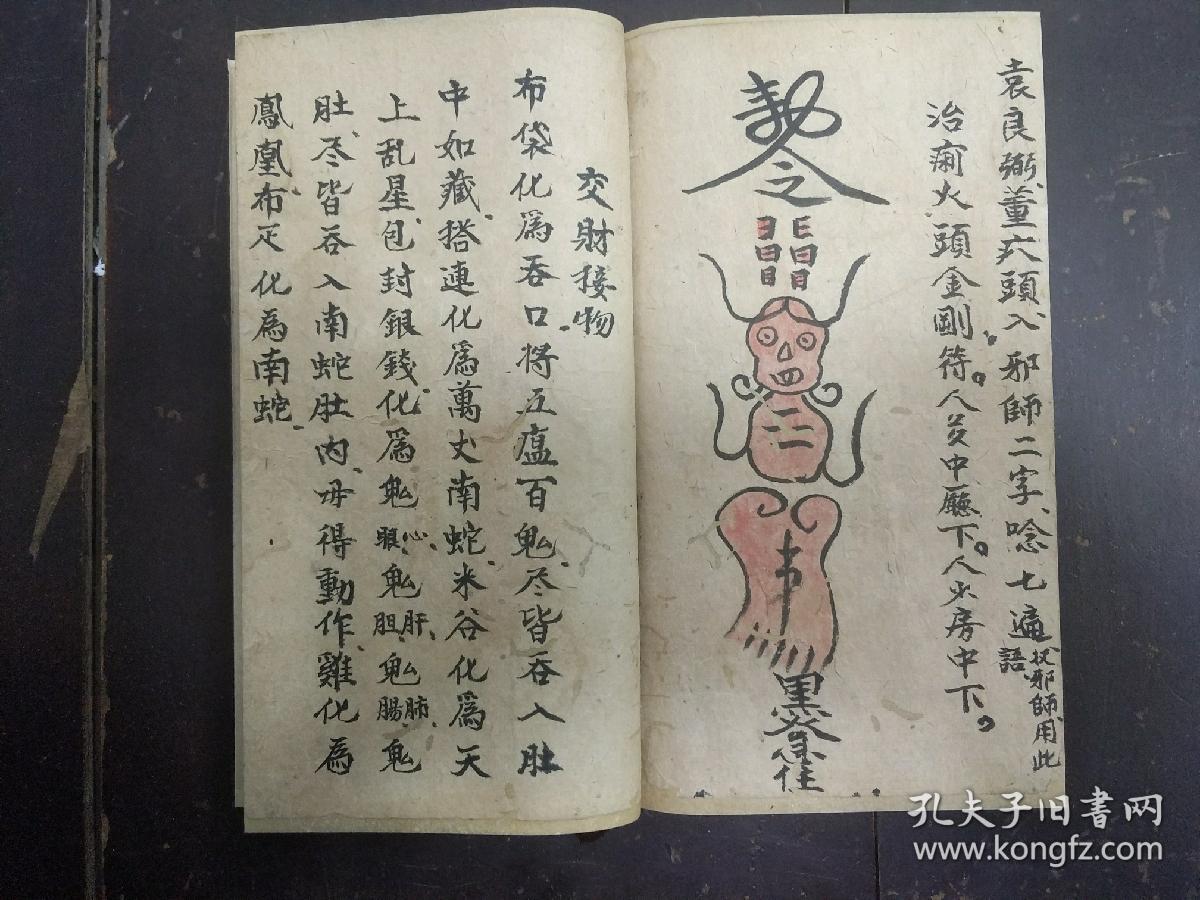 袁良弼、董大頭、入邪師二字、唸七遍
扙邪師、用此
語
治痢火頭金剛符。人多中廳下。人少房中下。
勅令
日日
日日
日日
四
二二
黑
住
交財接物
布袋化為吞口、將五瘟百鬼、尽皆吞入肚
中如藏、搭連化為萬丈南蛇、米谷化為天
上乱星、包封銀錢、化為鬼心、鬼眼、鬼肝、鬼胆、鬼肺、鬼腸、鬼
肚、尽皆吞入南蛇肚内、毋得動作、雞化為
鳳凰、布疋化為南蛇、
孔夫子旧書网
www.kongfz.com